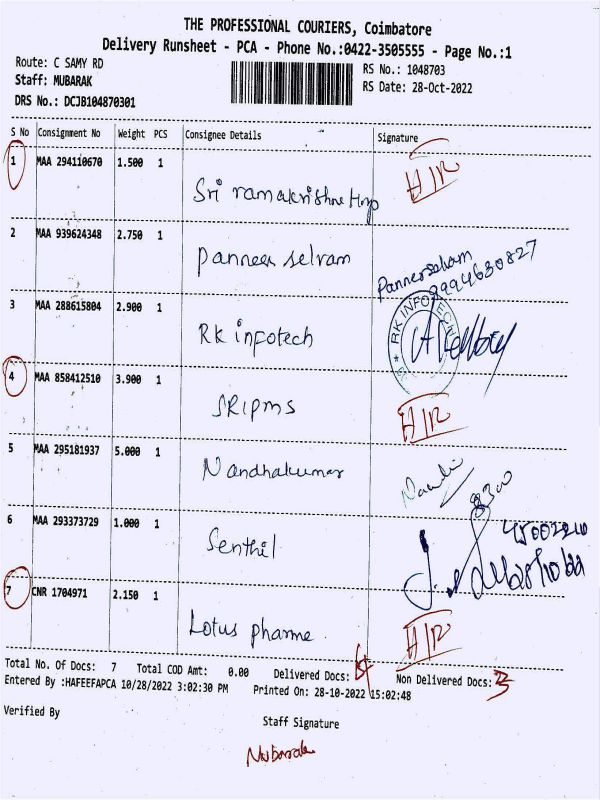 THE PROFESSIONAL COURIERS, Coimbatore
Delivery Runsheet - PCA - Phone No.:0422-3505555 - Page No.:1
Route: C SAMY RD
Staff: MUBARAK
DRS No.: DCJB104870301
RS No.: 1048703
RS Date: 28-Oct-2022
S No Consignment No Weight PCS Consignee Details Signature
1 MAA 294110670 1.500 1 Sri ramakrishne Hosp H/R
2 MAA 939624348 2.750 1 panneer selvam Pannerselvam
9994630827
3 MAA 288615804 2.900 1 RK infotech RK INFOTECH
4 MAA 858412510 3.900 1 SRIPMS H/R
5 MAA 295181937 5.000 1 Nandhakumar
6 MAA 293373729 1.000 1 Senthil
7 CNR 1704971 2.150 1 Lotus pharme H/R
Total No. Of Docs: 7 Total COD Amt: 0.00 Delivered Docs: 4 Non Delivered Docs: 3
Entered By :HAFEEFAPCA 10/28/2022 3:02:30 PM Printed On: 28-10-2022 15:02:48
Verified By
Staff Signature
Mubarak